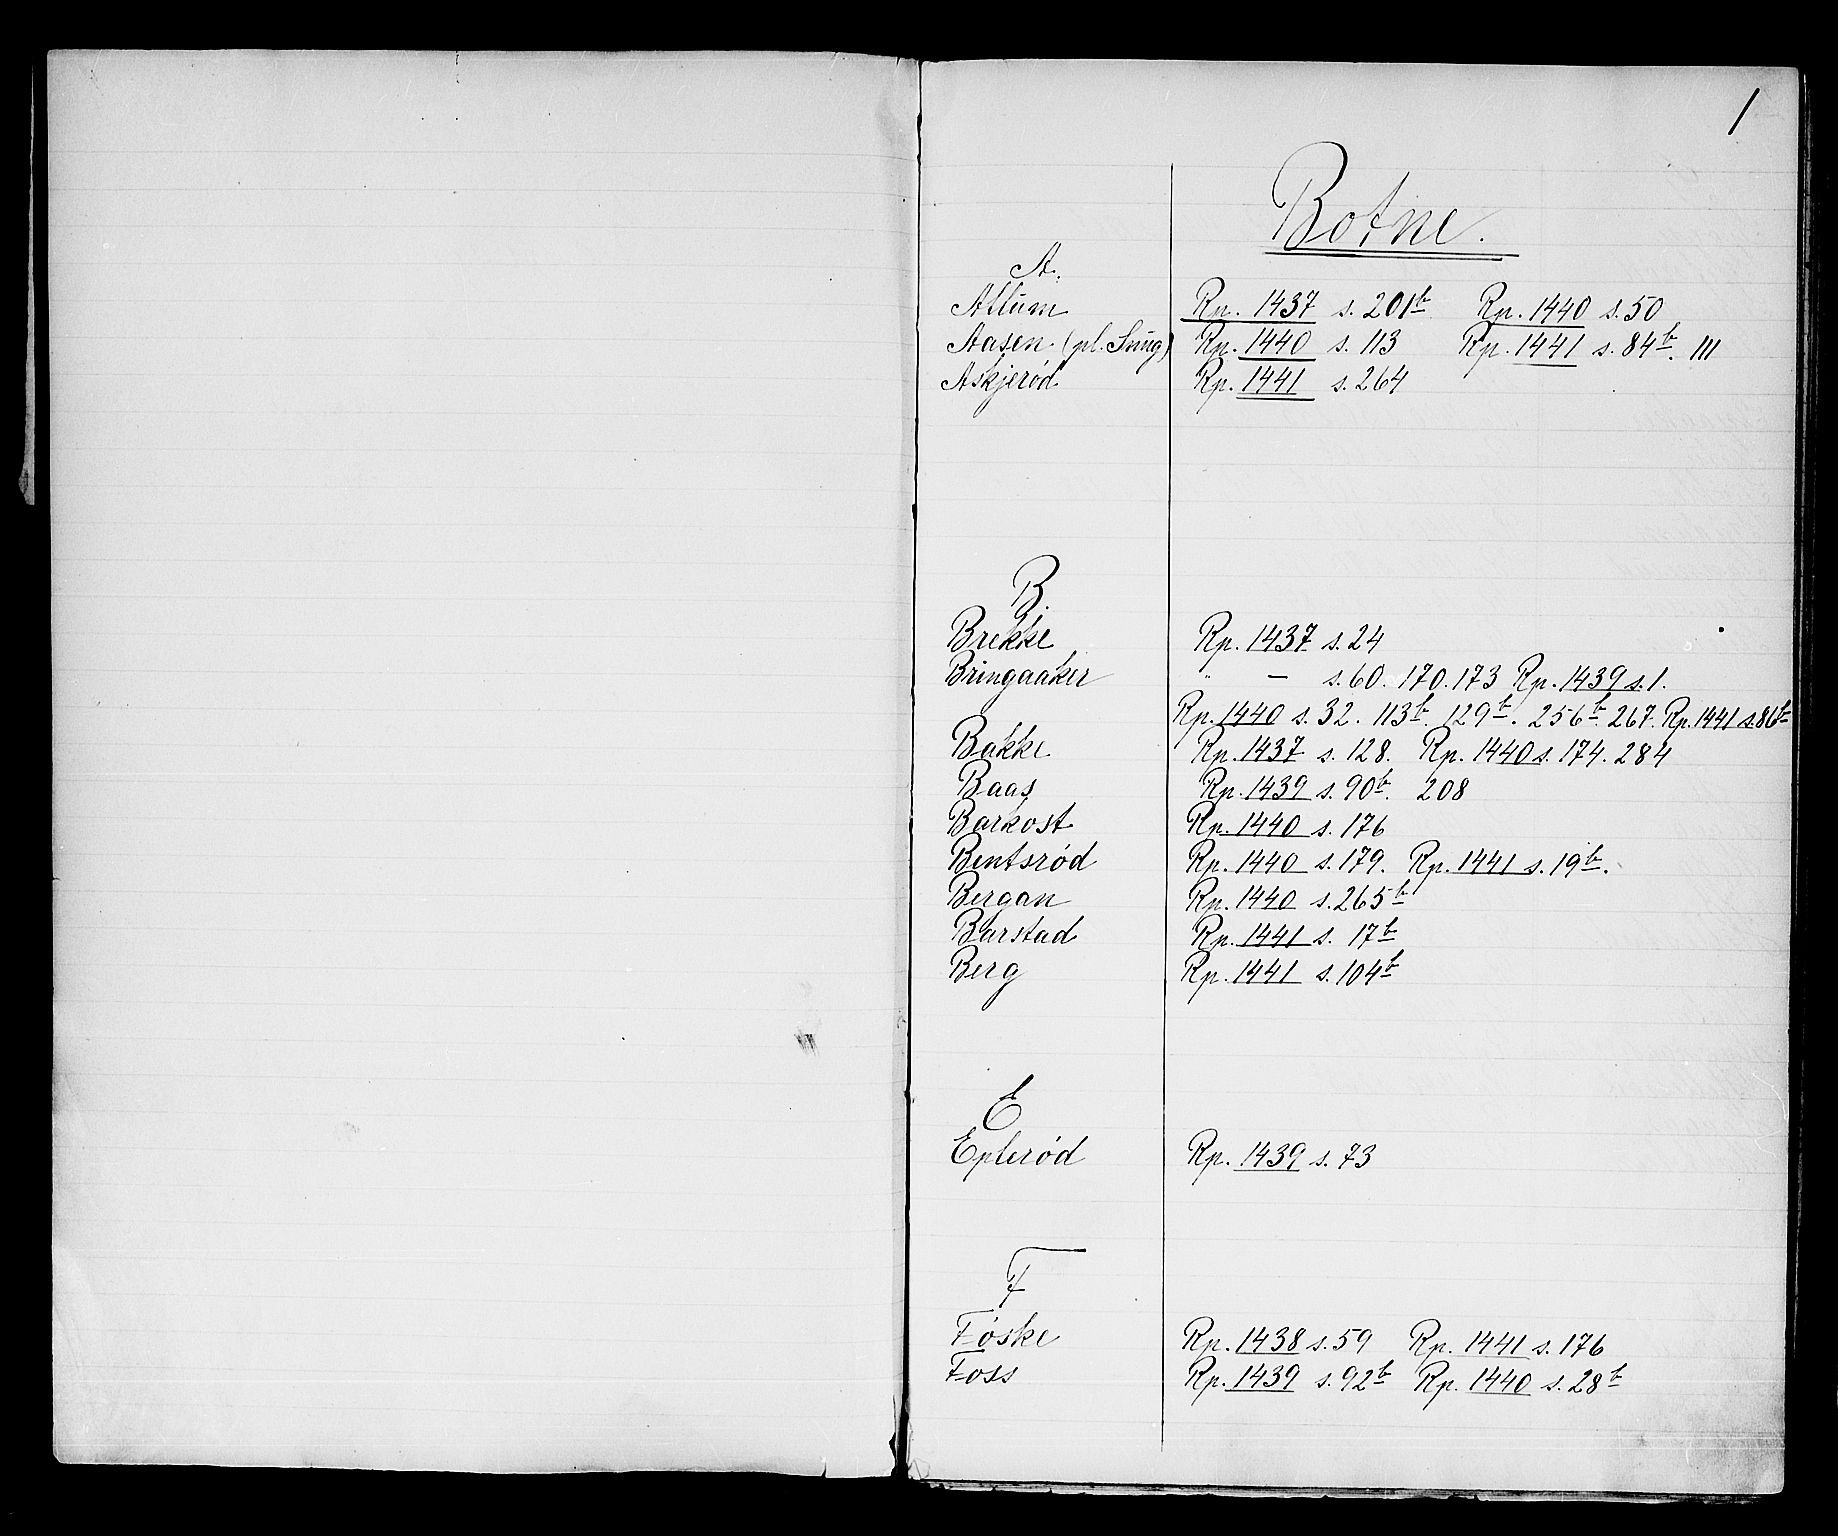 1
Botne.
A.
Allum Rp. 1437 s. 201b Rp. 1440 s. 50
Aasen (pl. Snug) Rp. 1440 s. 113 Rp. 1441 s. 84b. 111
Askjerød Rp. 1441 s. 264
B.
Brekke Rp. 1437 s. 24
Bringaaker " — s. 60. 170. 173 Rp. 1439 s. 1.
Rp. 1440 s. 32. 113b. 129b. 256b. 267. Rp. 1441 s. 86b
Bakke Rp. 1437 s. 128. Rp. 1440 s. 174. 284
Baas Rp. 1439 s. 90b. 208
Barkost Rp. 1440 s. 176
Bentsrød Rp. 1440 s. 179. Rp. 1441 s. 19b.
Bergan Rp. 1440 s. 265b
Barstad Rp. 1441 s. 17b
Berg Rp. 1441 s. 104b
E
Eplerød Rp. 1439 s. 73
F
Føske Rp. 1438 s. 59 Rp. 1441 s. 176
Foss Rp. 1439 s. 92b Rp. 1440 s. 28b